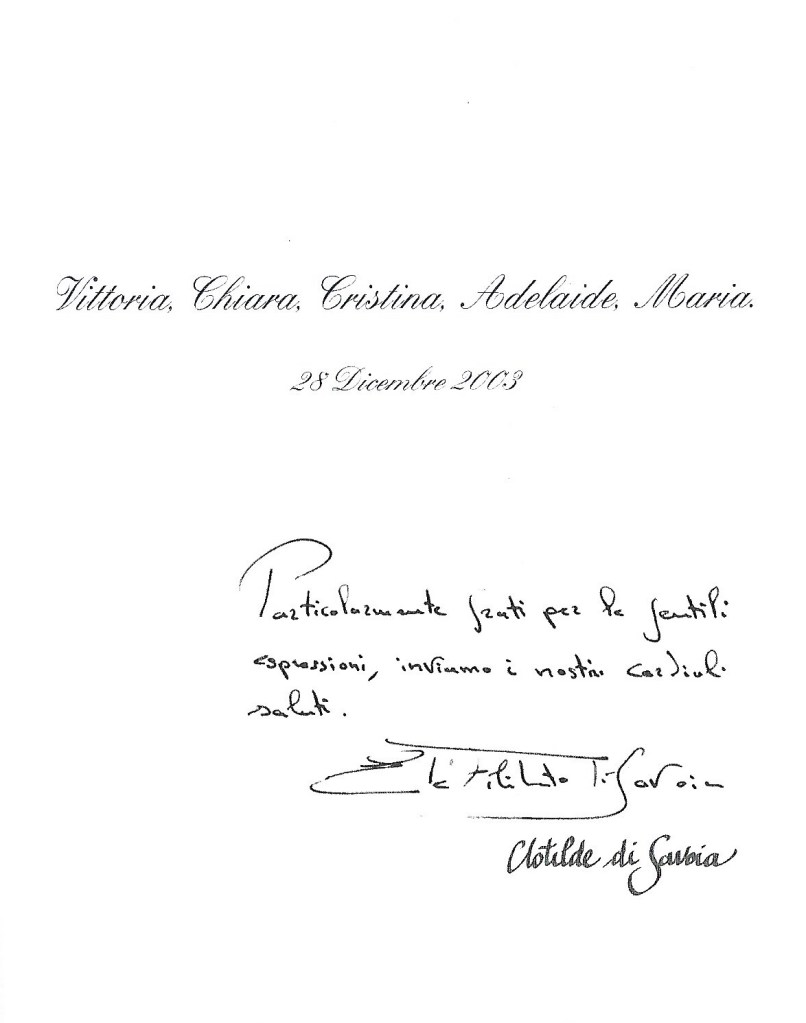 Vittoria, Chiara, Cristina, Adelaide, Maria.
28 Dicembre 2003
Particolarmente grati per le gentili
espressioni, inviamo i nostri cordiali
saluti.
Filiberto di Savoia
Clotilde di Savoia